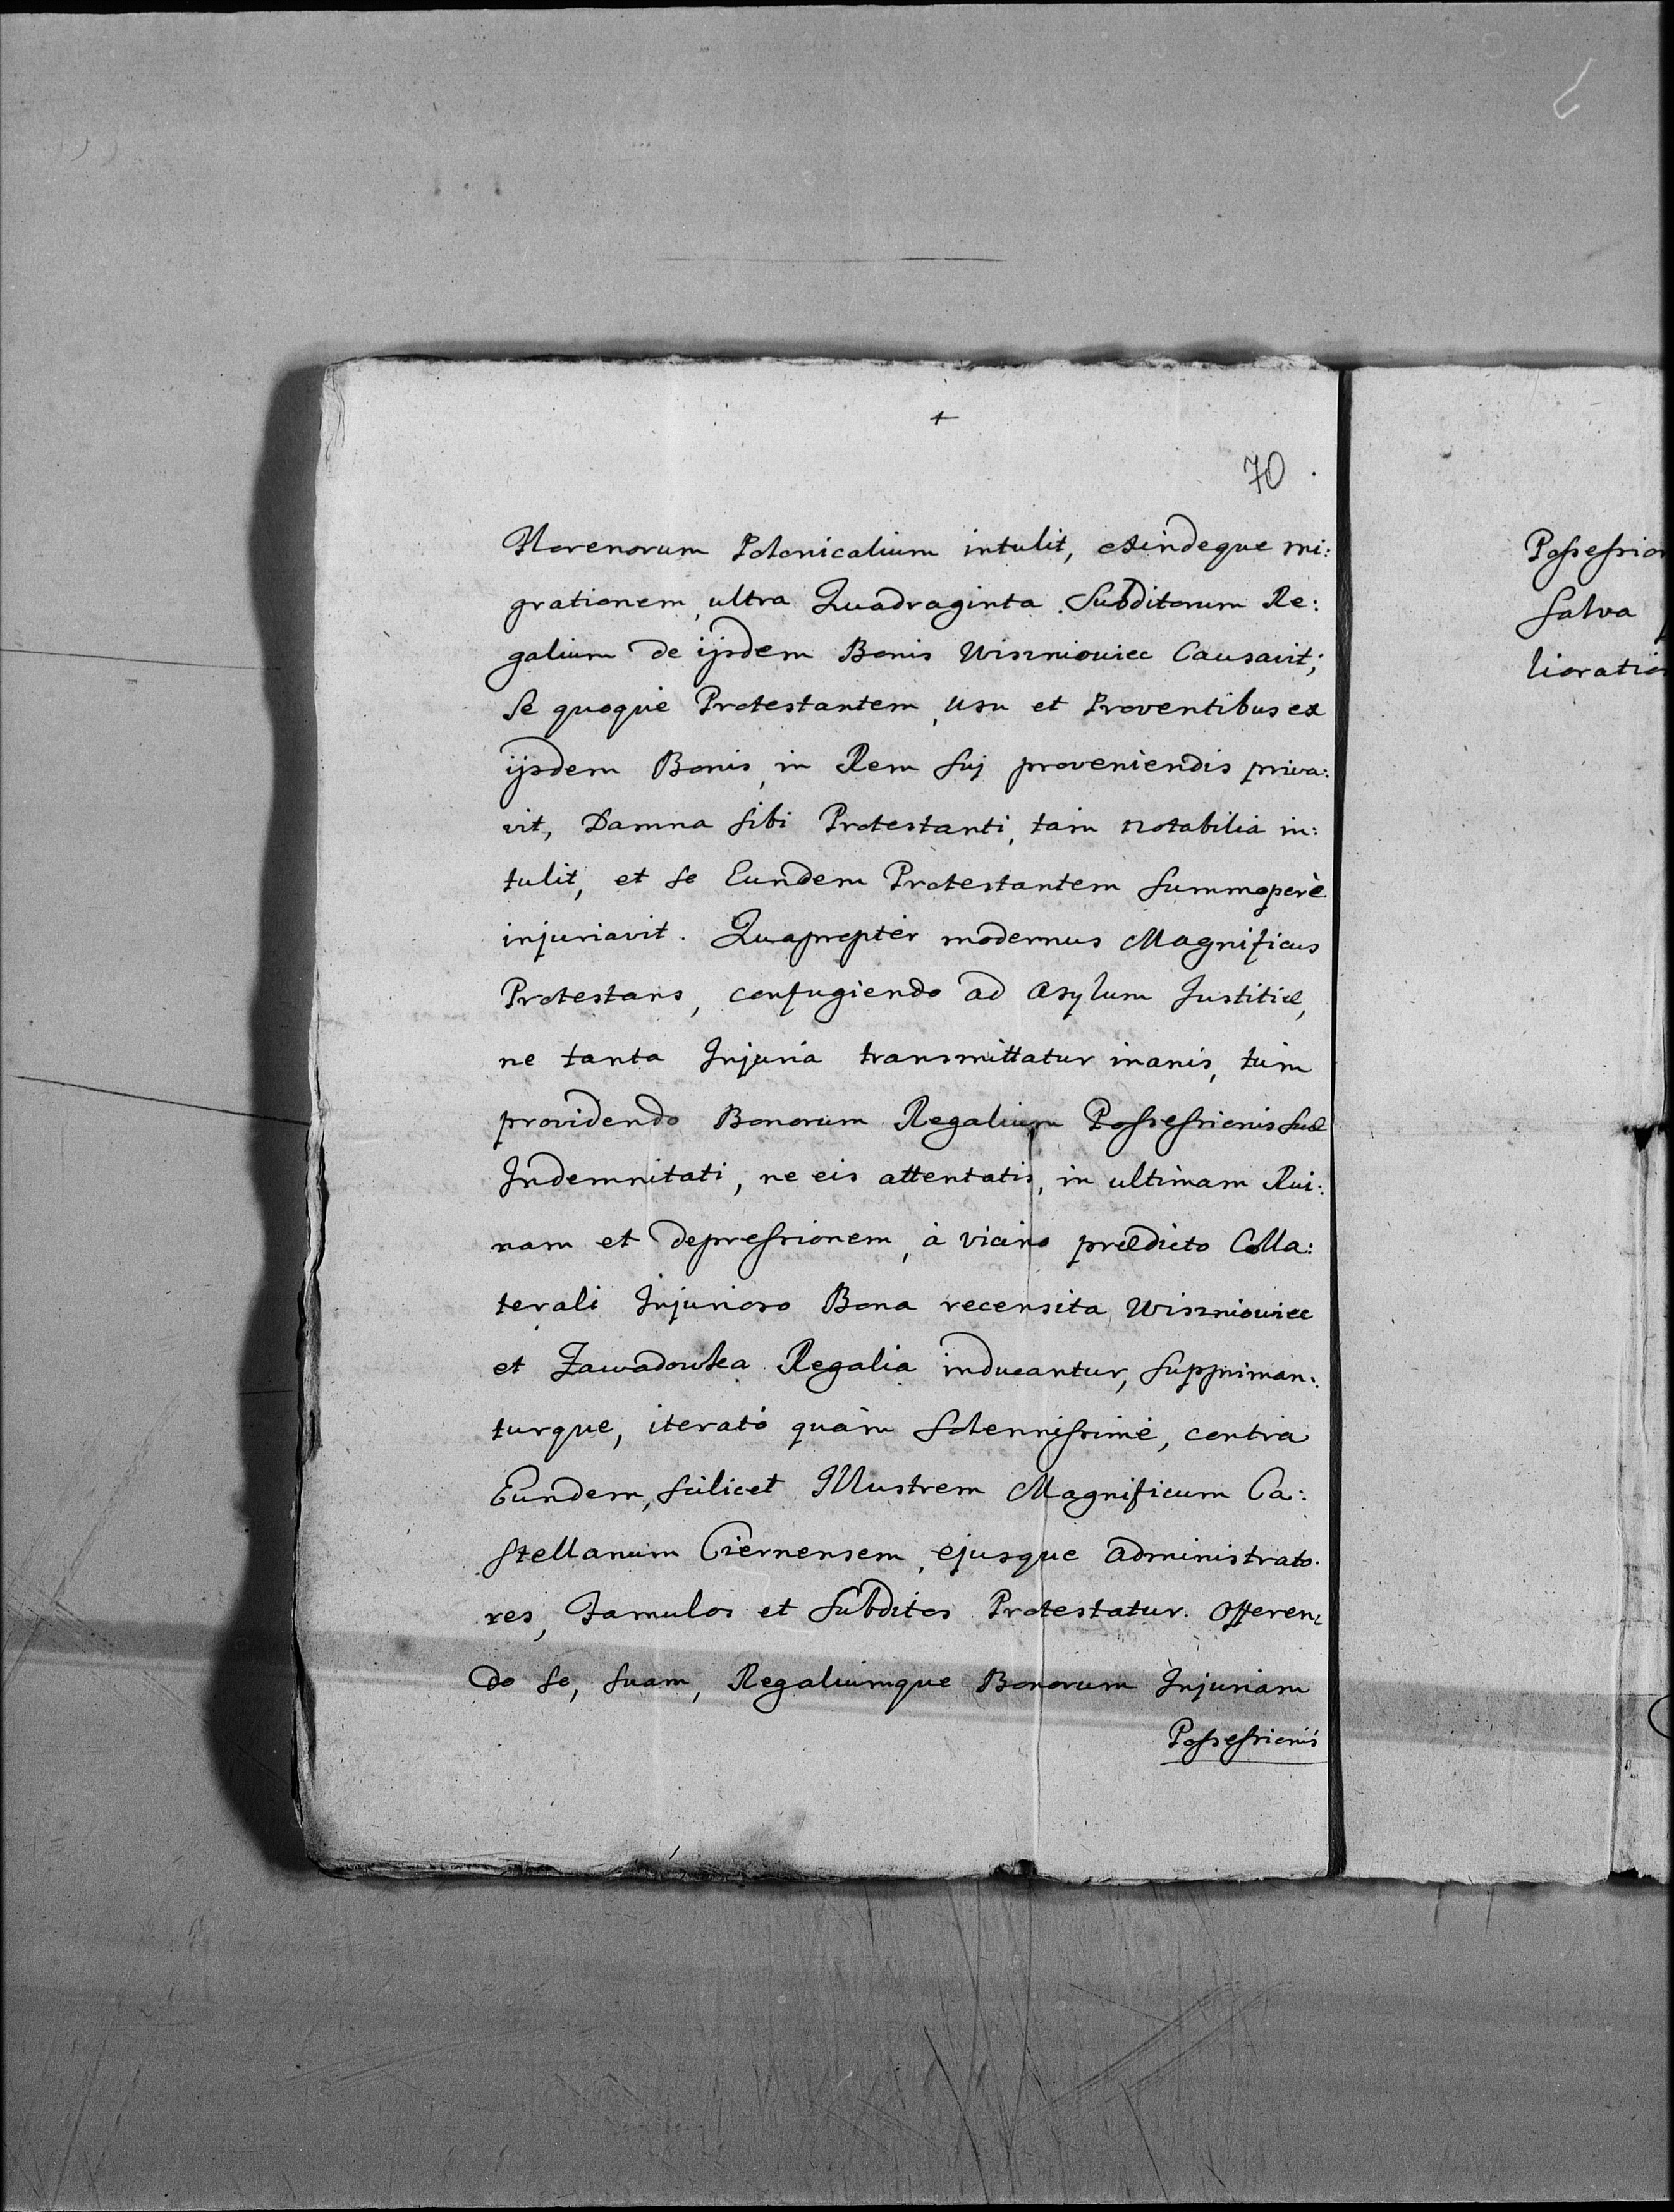 +
70
Florenorum Polonicalium intulit, exindeque mi:
grationem, ultra Quadraginta Subditorum Re:
galium de ijsdem Bonis Wiszniowiec Causavit;
Se quoque Protestantem, usu et Proventibus ex
ijsdem Bonis, in Rem suj proveniendis priva:
vit, Damna sibi Protestanti, tam notabilia in:
tulit, et se Eundem Protestantem summoperè
injuriavit. Quapropter modernus Magnificus
Protestans, confugiendo ad Asylum Justitiæ,
ne tanta Injuria transmittatur inanis, tùm
providendo Bonorum Regalium Possessionis suæ
Indemnitati, ne eis attentatis, in ultimam Rui:
nam et depressionem, à vicino prædicto Colla:
terali Injurioso Bona recensita Wiszniowiec
et Zawadowka Regalia inducantur, suppriman:
turque, iteratò quàm solennissimè, contra
Eundem, scilicet Illustrem Magnificum Ca:
stellanum Ciernensem, ejusque Administrato
res, Famulos et Subditos Protestatur. Offeren:
do se, suam, Regaliumque Bonorum Injuriam
Possessionis
Possession
Salva
lioration